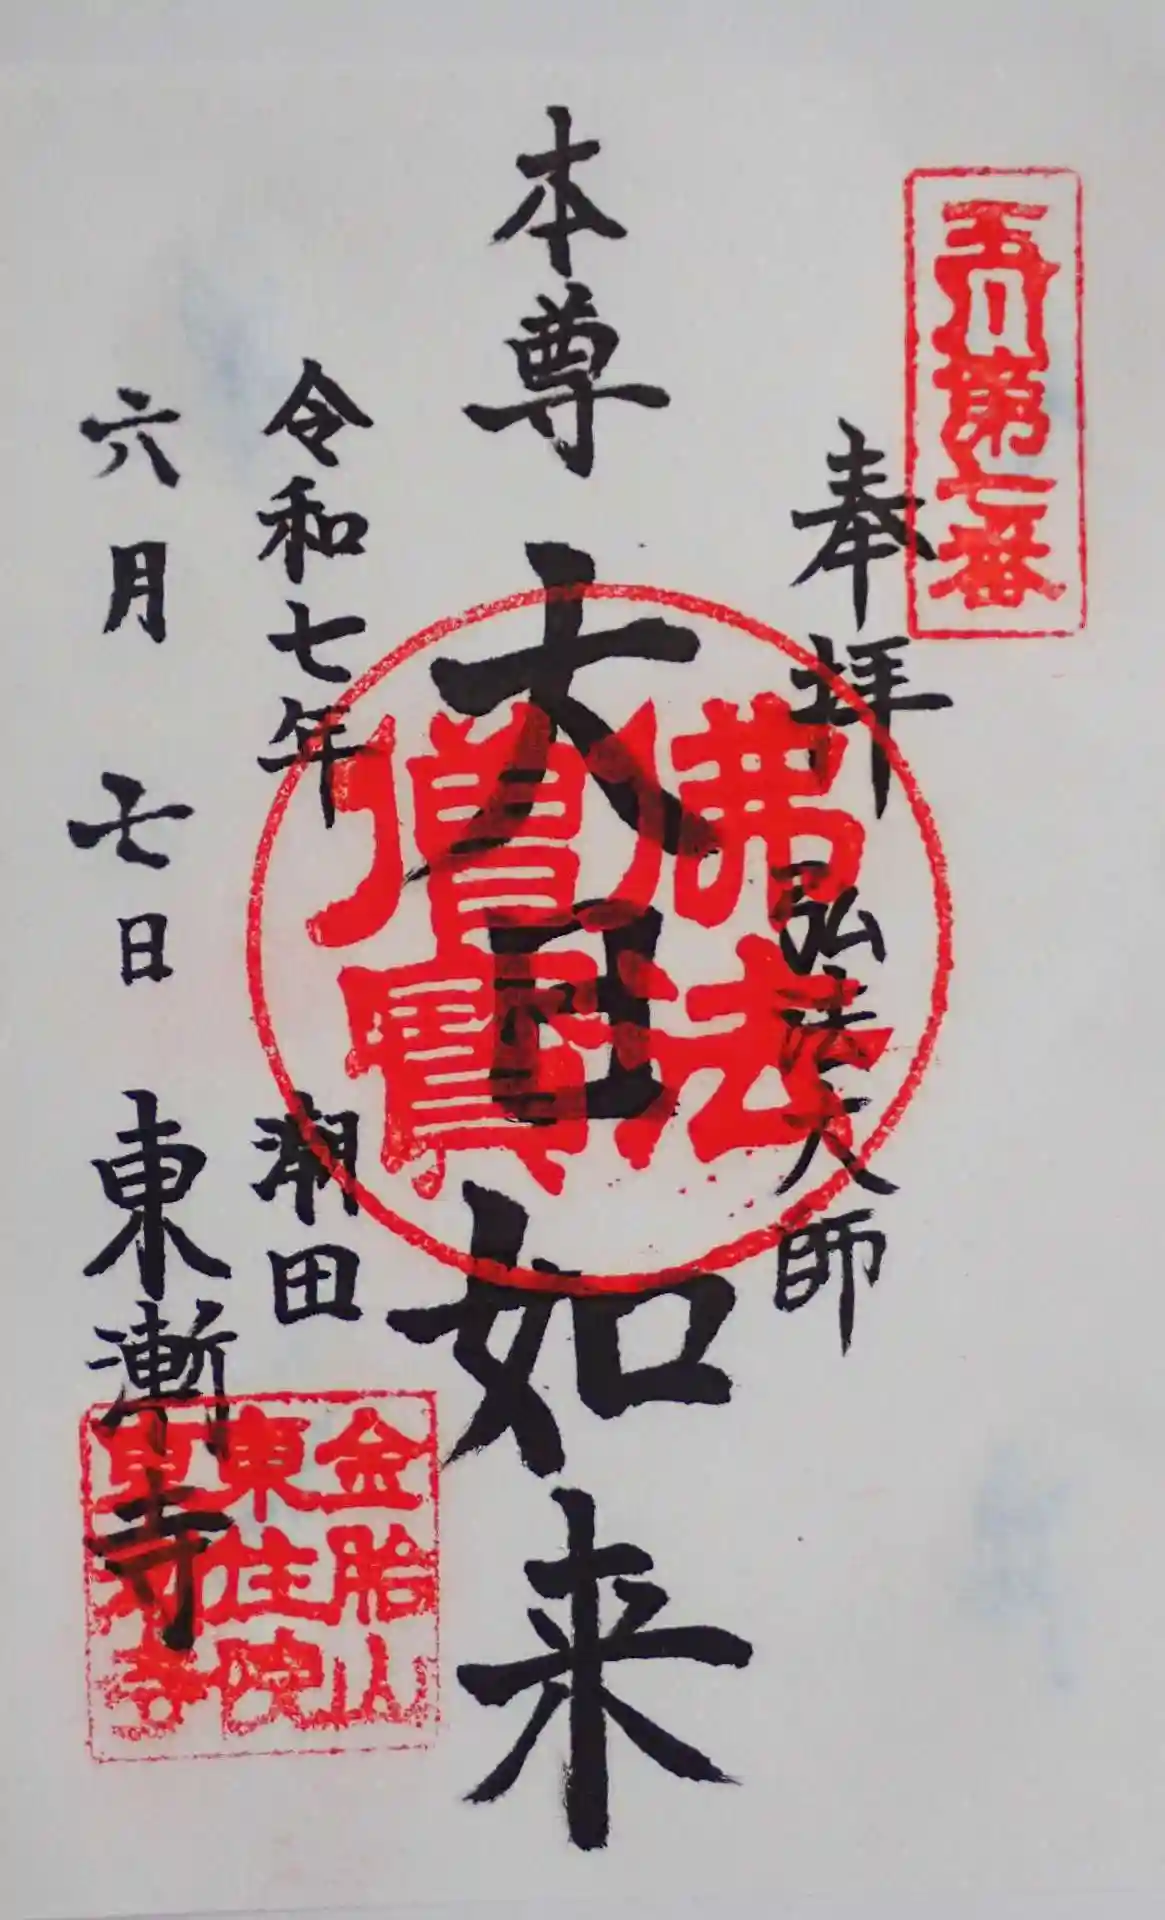 玉川第七番
奉拝 弘法大師
本尊 大日如来
佛法
僧寳
令和七年 潮田
六月七日 東漸寺
金胎山
東住院
東漸寺